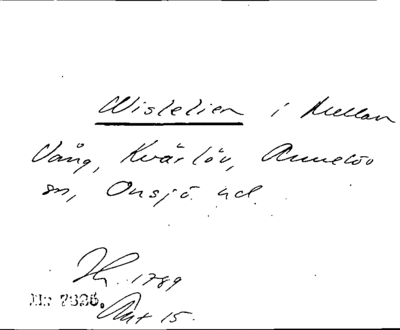 Wistelien i Mellan
Vång, Kvärlöv, Annelöv
sn, Onsjö hd.
1789
Akt 15.